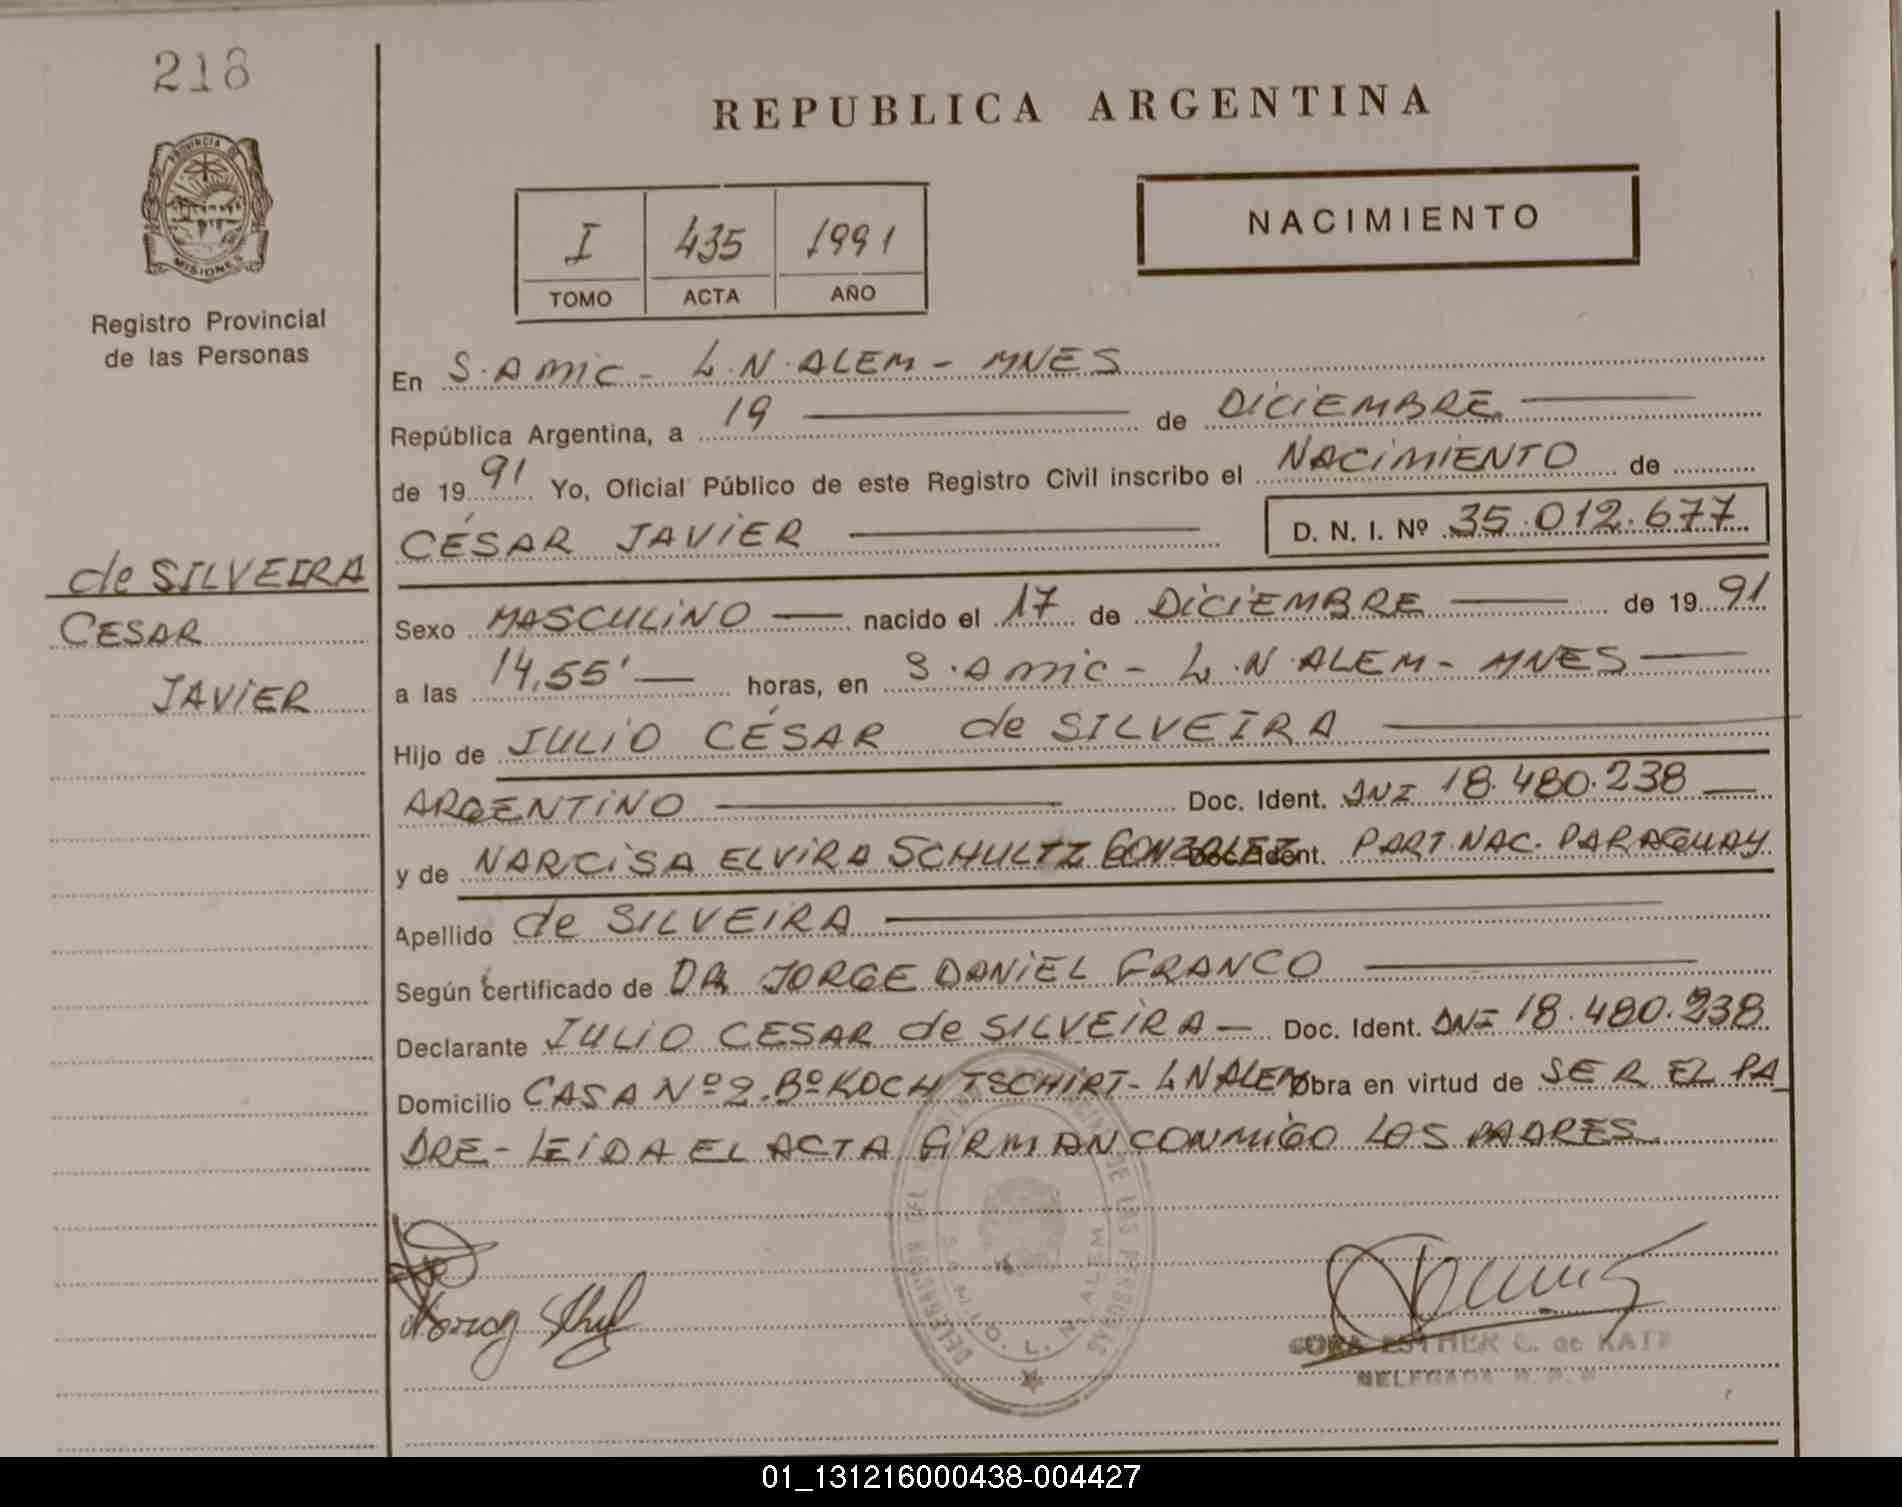 218
REPUBLICA ARGENTINA
PROVINCIA DE
MISIONES
Registro Provincial
de las Personas
I 435 1991
TOMO ACTA AÑO
NACIMIENTO
En S. A MIC - L. N. ALEM - MNES
República Argentina, a 19 de DICIEMBRE
de 1991 Yo, Oficial Público de este Registro Civil inscribo el NACIMIENTO de
CÉSAR JAVIER D. N. I. Nº 35.012.677
de SILVEIRA
CESAR
JAVIER
Sexo MASCULINO nacido el 17 de DICIEMBRE de 1991
a las 14,55' horas, en S. A MIC - L. N. ALEM - MNES
Hijo de JULIO CÉSAR de SILVEIRA
ARGENTINO Doc. Ident. DNI 18.480.238
y de NARCISA ELVIRA SCHULTZ GONZALEZ Doc. Ident. PART. NAC. PARAGUAY
Apellido de SILVEIRA
Según certificado de DR. JORGE DANIEL FRANCO
Declarante JULIO CESAR de SILVEIRA Doc. Ident. DNI 18.480.238
Domicilio CASA Nº 2. Bº KOCH TSCHIRT - L N ALEM Obra en virtud de SER EL PA
DRE - LEIDA EL ACTA FIRMAN CONMIGO LOS PADRES
ESTHER C. de KATZ
DELEGADA R. P. P.
01_131216000438-004427